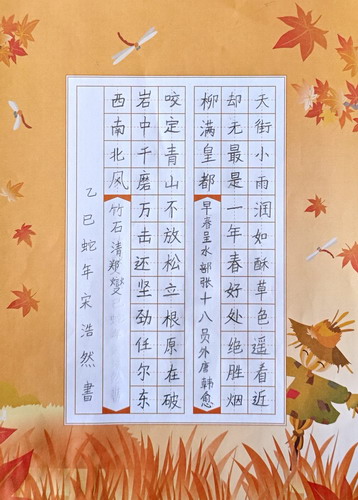 天街小雨润如酥草色遥看近
却无最是一年春好处绝胜烟
柳满皇都
早春呈水部张十八员外唐韩愈
咬定青山不放松立根原在破
岩中千磨万击还坚劲任尔东
西南北风
竹石清郑燮
乙巳蛇年宋浩然書